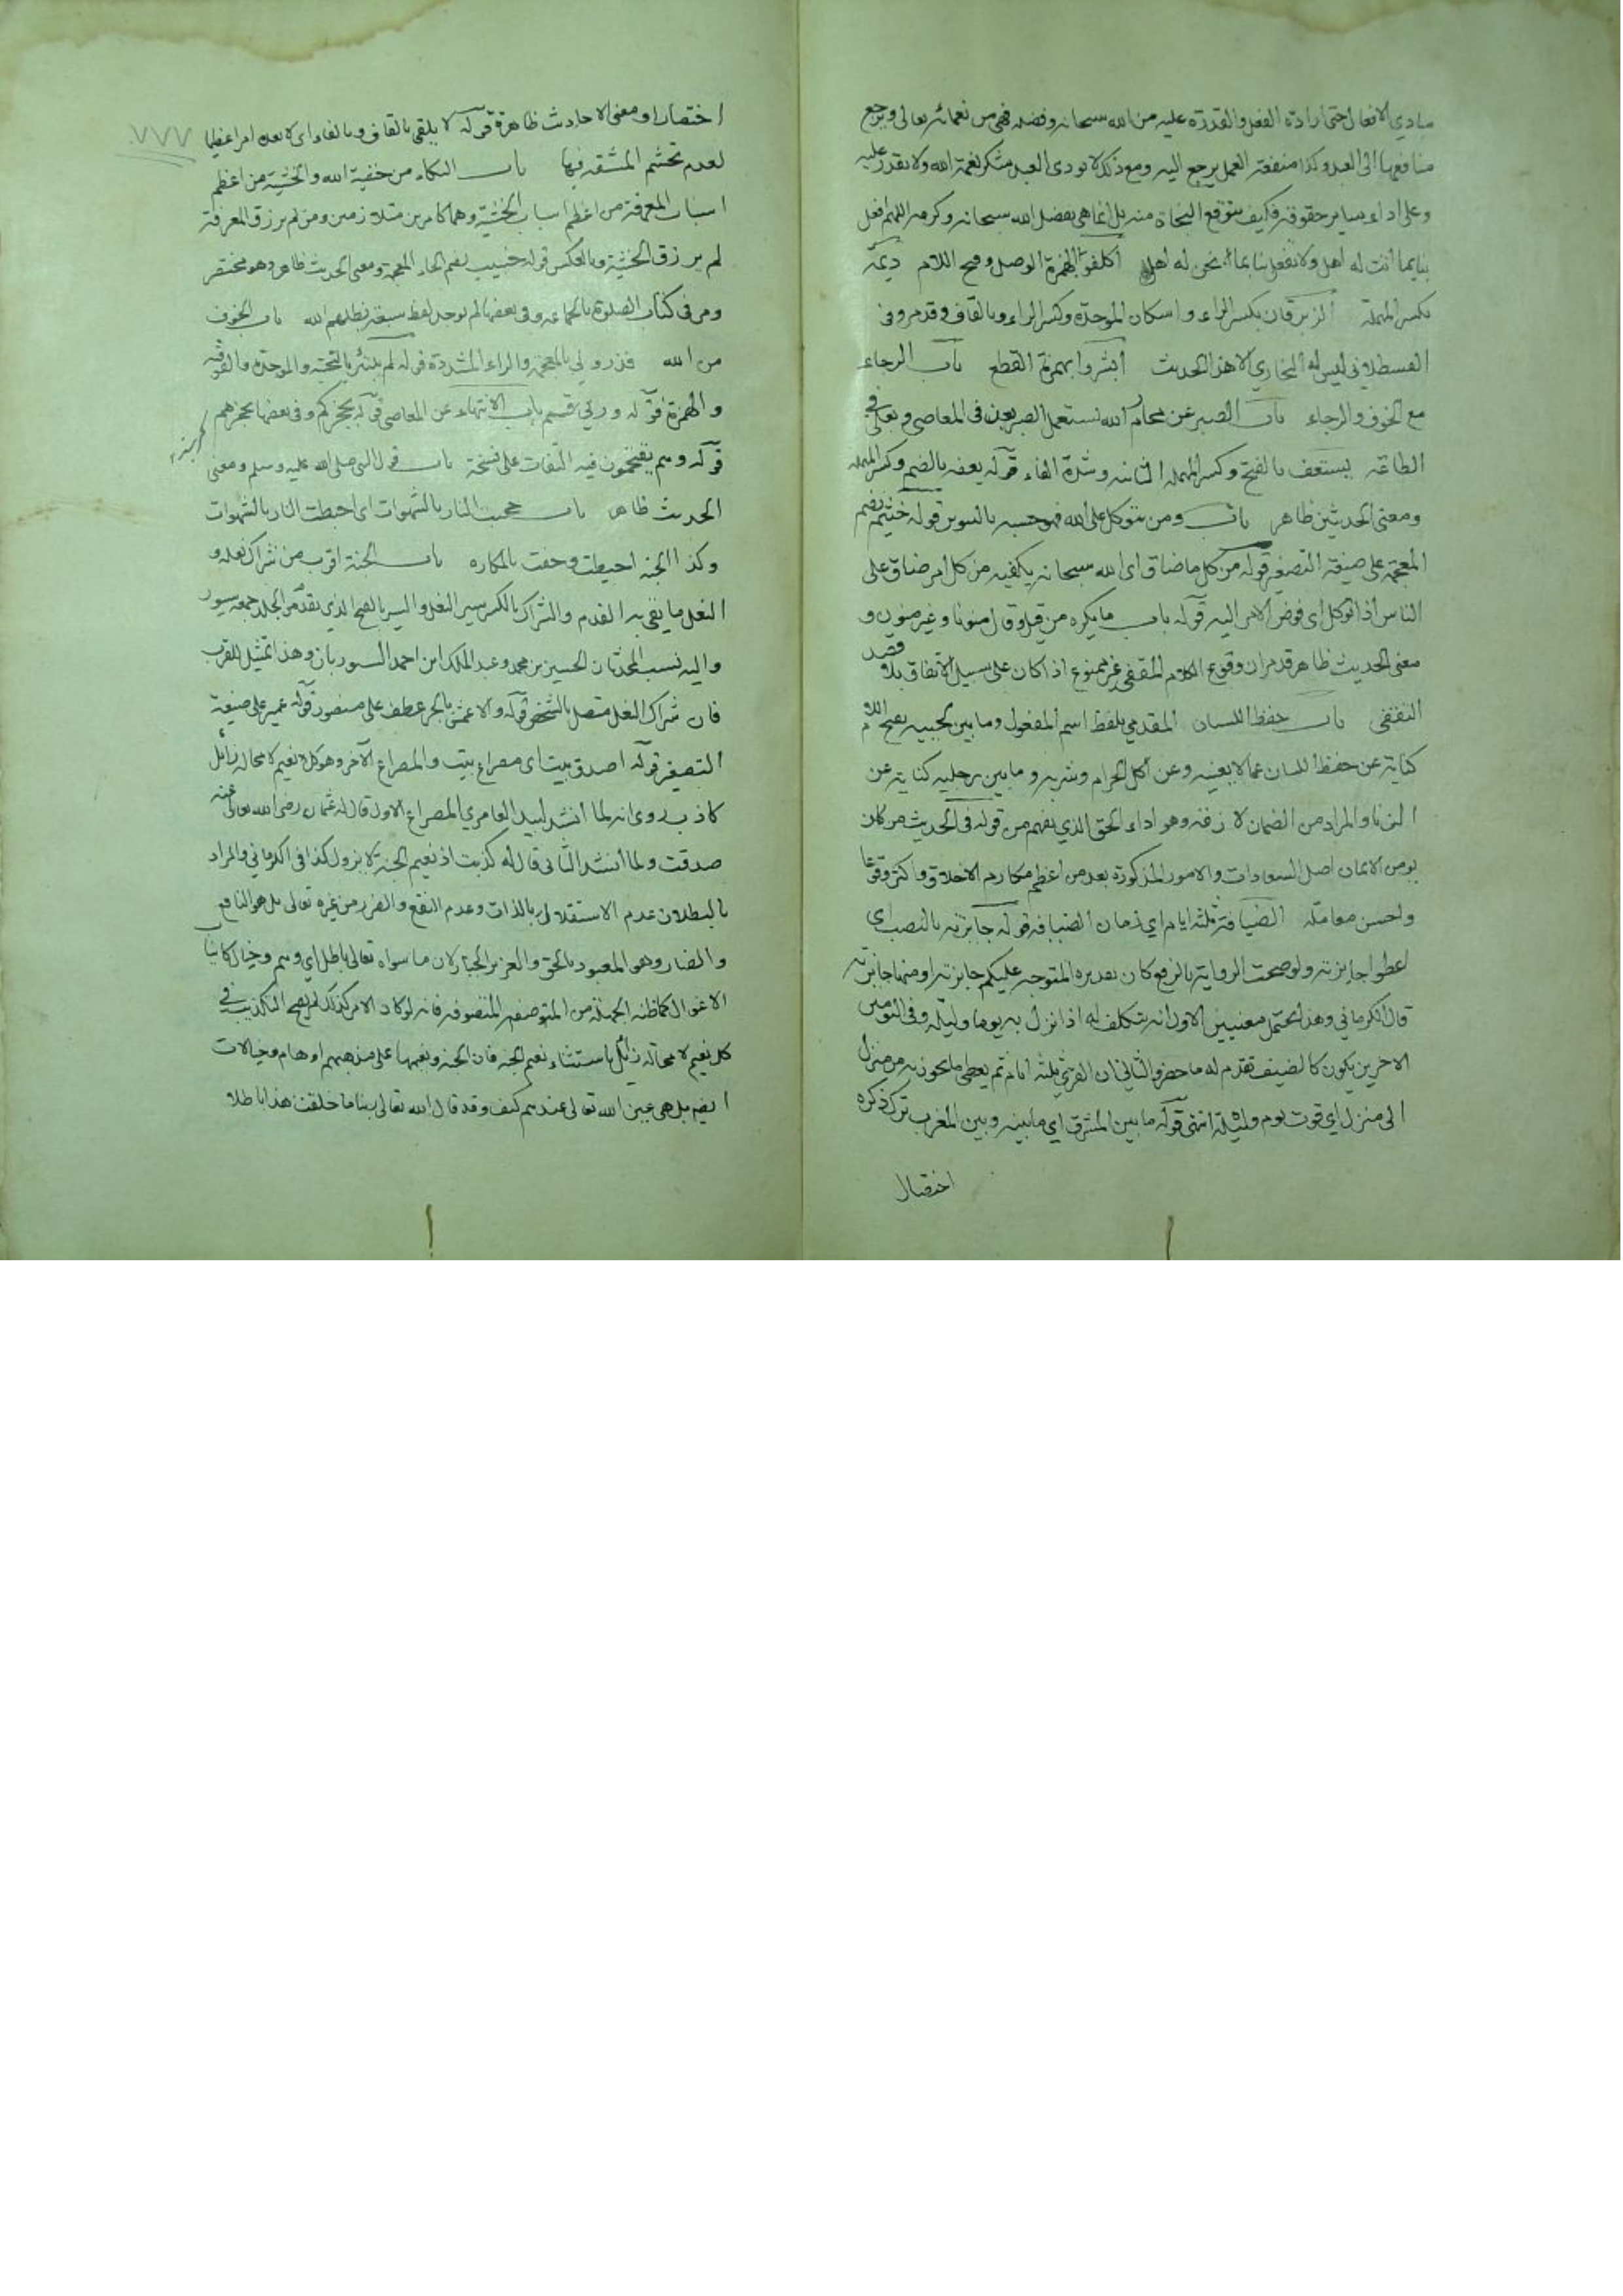 مبادي الافعال حتى ارادة الفعل والقدرة عليه من الله سبحانه وفضله فهي من نعمائه تعالى ويرجع
منافعها الى العبد وكذا منفعة العمل يرجع اليه ومع ذلك لا يودى العبد شكر نعمة الله ولا يقدر عليه
وعلى اداء يسير حقوقه فكيف يتوقع النجاة منه بل انما هى بفضل الله سبحانه وكرمه اللهم افعل
بنا بما أنت له اهل ولا تفعل بنا بما نحن له اهل اكلفوا بهمزة الوصل وفتح اللام ديمة
بكسر المهملة الزبرقان بكسر الزاء واسكان الموحدة وكسر الراء وبالقاف وقد مر وفى
القسطلانى ليس له البخاري الا هذا الحديث أبشروا بهمزة القطع باب الرجاء
مع الخوف والرجاء باب الصبر عن محارم الله يستعمل الصبر بعن فى المعاصى وبعلى فى
الطاعة يستعفف بالفتح وكسر المهملة الثانية وشدة الفاء قوله يعفه بالضم وكسر المهملة
ومعنى الحديثين ظاهر باب ومن يتوكل على الله فهو حسبه بالتنوين قوله خثيم بضم
المعجمة على صيغة التصغير قوله من كل ما ضاق اى الله سبحانه يكفيه من كل امر ضاق على
الناس اذا توكل اى فوض الامر اليه قوله باب ما يكره من قيل وقال منونا وغير منون و
معنى الحديث ظاهر قد مر ان وقوع الكلام المقفى غير ممنوع اذا كان على سبيل الاتفاق بلا قصد
التقفى باب حفظ اللسان المقدمي بلفظ اسم المفعول وما بين لحييه بفتح اللام
كناية عن حفظ اللسان عما لا يعنيه وعن اكل الحرام وشربه وما بين رجليه كناية عن
الزنا والمراد من الضمان لازمه وهو اداء الحق الذي يفهم من قوله فى الحديث من كان
يومن الايمان اصل السعادات والامور المذكورة بعد من اعظم مكارم الاخلاق واكثر وقوعا
واحسن معاملة الضيافة ثلثة ايام اي زمان الضيافة قوله جايزته بالنصب اى
اعطوا جايزته ولو صحت الرواية بالرفع كان تقديره المتوجه عليكم جايزته او منها جايزته
قال الكرماني وهذا يحتمل معنيين الاول انه يتكلف له اذا نزل به يوما وليلة وفى اليومين
الاخرين يكون كالضيف يقدم له ما حضر والثاني ان القرى ثلثة ايام ثم يعطى ما يجوز به من منزل
الى منزل اي قوت يوم وليلة انتهى قوله ما بين المشرق اي ما بينه وبين المغرب ترك ذكره
اختصارا
اختصارا ومعنى الاحاديث ظاهرة قوله لا يلقى بالقاف وبالفاء اى لا يعده امرا عظيما
٧٧٧
لعدم تجشم المشقة فيها باب البكاء من خشية الله والخشية من اعظم
اسباب المعرفة من اعظم اسباب الخشية وهما كامرين متلازمين ومن لم يرزق المعرفة
لم يرزق الخشية وبالعكس قوله خبيب بضم الخاء المعجمة ومعنى الحديث ظاهر وهو مختصر
ومر فى كتاب الصلوة بالجماعة وفى بعضها لم يوجد لفظ سبعة يظلهم الله باب الخوف
من الله فذروني بالمعجمة والراء المشددة قوله لم يبتئر بالتحتية والموحدة والفوقية
والهمزة قوله وربي قسم باب الانتهاء عن المعاصى قوله بحجزكم وفى بعضها بحجزهم
قوله وهم يقتحمون فيه التفات على نسخة باب قول النبى صلى الله عليه وسلم ومعنى
الحديث ظاهر باب حجبت النار بالشهوات اى احيطت النار بالشهوات
وكذا الجنة احيطت وحفت بالمكاره باب الجنة اقرب من شراك نعله و
النعل ما يقى به القدم والشراك بالكسر سير النعل والسير بالفتح الذي يقد من الجلد جمعه سيور
واليه نسب المحدثان الحسين بن محمد وعبد الملك ابن احمد السيوريان وهذا تمثيل للقرب
فان شراك النعل متصل بالشخص قوله والاعمش بالجر عطف على منصور قوله عمير على صيغة
التصغير قوله اصدق بيت اى مصراع بيت والمصراع الآخر وهو كل نعيم لا محالة زائل
كاذب روى انه لما انشد لبيد العامري المصراع الاول قال له عثمان رضى الله تعالى عنه
صدقت ولما أنشد الثانى قال له كذبت اذ نعيم الجنة لا يزول كذا فى الكرماني والمراد
بالبطلان عدم الاستقلال بالذات وعدم النفع والضرر من غيره تعالى بل هو النافع
والضار وهو المعبود بالحق والعزيز الجبار لان ما سواه تعالى باطل اي وهم وخيال كانياب
الاغوال كما ظنه الجهلة من المتصوفة فانه لو كان الامر كذلك لم يصح التكذيب في
كل نعيم لا محالة زائل باستثناء نعيم الجنة فان الجنة ونعيمها على مذهبهم اوهام وخيالات
ايضا بل هى عين الله تعالى عندهم كيف وقد قال الله تعالى ربنا ما خلقت هذا باطلا